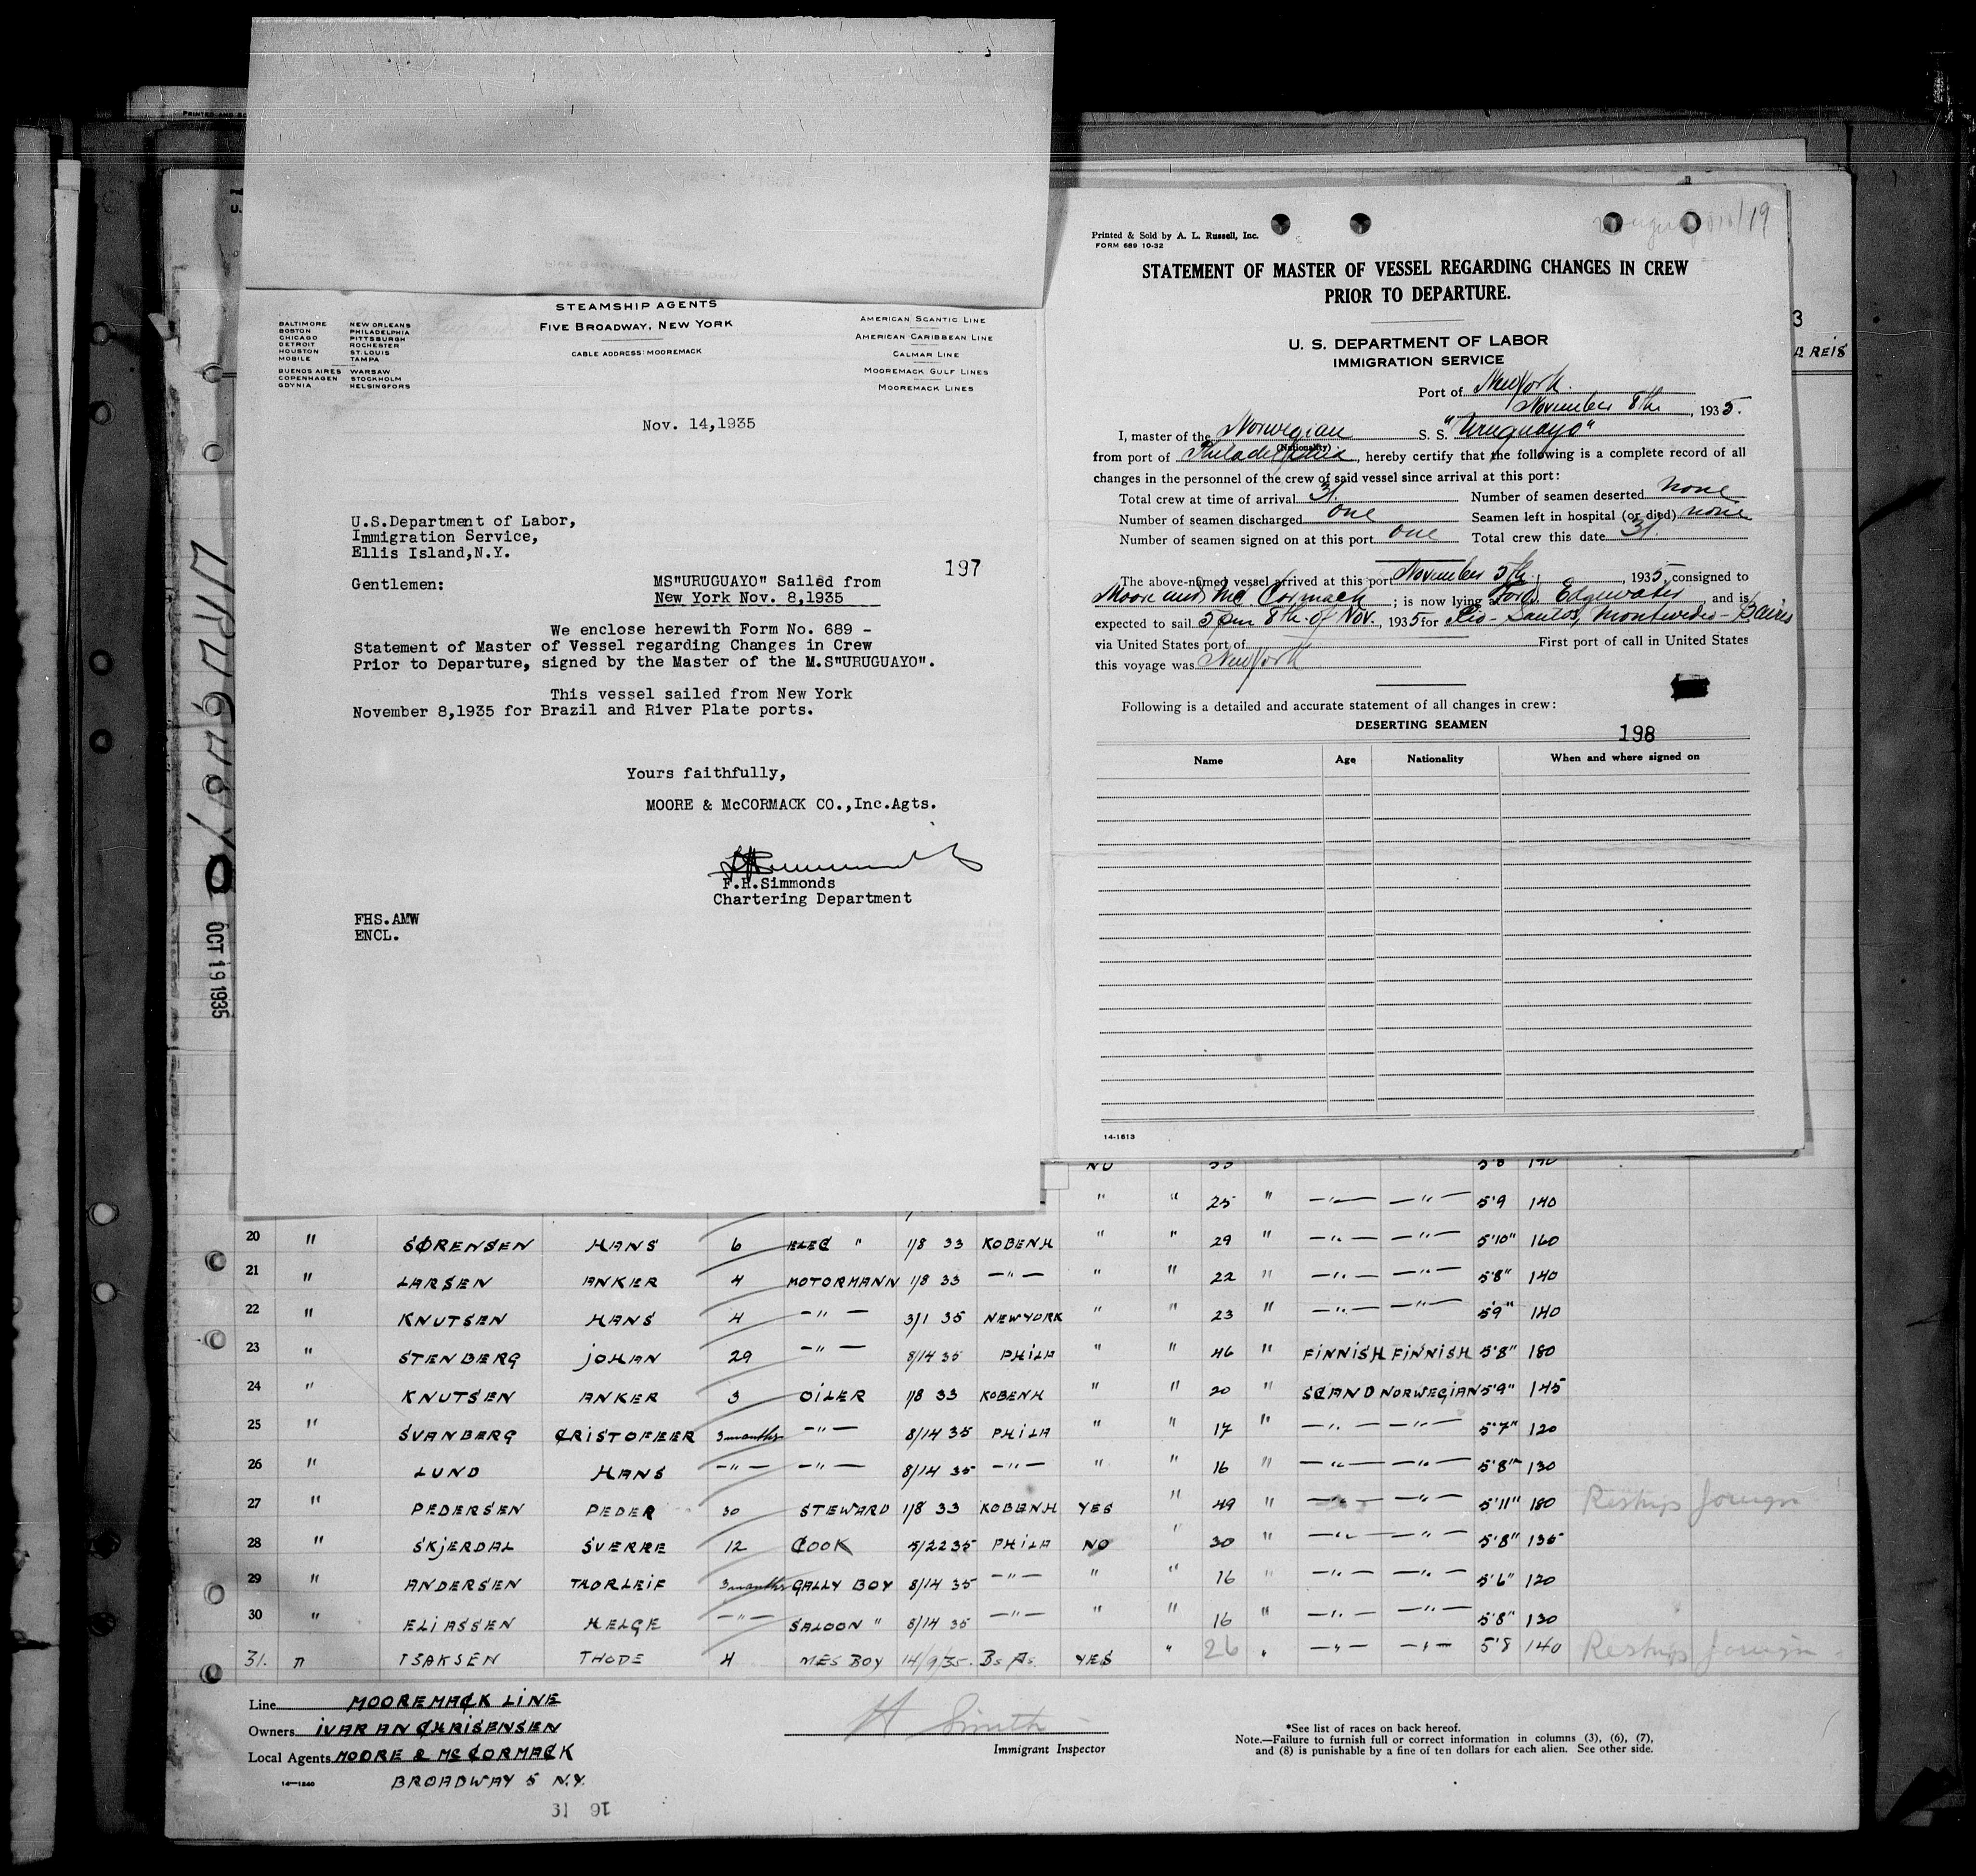 STEAMSHIP AGENTS
FIVE BROADWAY, NEW YORK
CABLE ADDRESS: MOOREMACK
BALTIMORE NEW ORLEANS
BOSTON PHILADELPHIA
CHICAGO PITTSBURGH
DETROIT ROCHESTER
HOUSTON ST. LOUIS
MOBILE TAMPA
BUENOS AIRES WARSAW
COPENHAGEN STOCKHOLM
GDYNIA HELSINGFORS
AMERICAN SCANTIC LINE
AMERICAN CARIBBEAN LINE
CALMAR LINE
MOOREMACK GULF LINES
MOOREMACK LINES
Nov. 14,1935
U.S.Department of Labor,
Immigration Service,
Ellis Island,N.Y.
197
Gentlemen:
MS"URUGUAYO" Sailed from
New York Nov. 8,1935
We enclose herewith Form No. 689 -
Statement of Master of Vessel regarding Changes in Crew
Prior to Departure, signed by the Master of the M.S"URUGUAYO".
This vessel sailed from New York
November 8,1935 for Brazil and River Plate ports.
Yours faithfully,
MOORE & McCORMACK CO.,Inc.Agts.
F.H.Simmonds
Chartering Department
FHS.AMW
ENCL.
URUGUAYO
OCT 19 1935
PRINTED AND
Printed & Sold by A. L. Russell, Inc.
FORM 689 10-32
STATEMENT OF MASTER OF VESSEL REGARDING CHANGES IN CREW
PRIOR TO DEPARTURE.
U. S. DEPARTMENT OF LABOR
IMMIGRATION SERVICE
Port of New York.
November 8th, 1935.
I, master of the Norwegian S. S. "Uruguayo"
(Nationality)
from port of Philadelphia, hereby certify that the following is a complete record of all
changes in the personnel of the crew of said vessel since arrival at this port:
Total crew at time of arrival 31. Number of seamen deserted none
Number of seamen discharged one Seamen left in hospital (or died) none
Number of seamen signed on at this port one Total crew this date 31.
The above-named vessel arrived at this port November 5th, 1935, consigned to
Moore and Mc Cormack; is now lying at Fords Edgewater, and is
expected to sail 5 pm 8th of Nov., 1935 for Rio - Santos, Montevideo - B aires
via United States port of First port of call in United States
this voyage was New York
Following is a detailed and accurate statement of all changes in crew:
DESERTING SEAMEN
198
Name Age Nationality When and where signed on
14-1613
3
REIS
NO 5'8 190
" " 25 " —"— —"— 5'9 140
20 " SØRENSEN HANS 6 ELEC " 1/8 33 KOBENH " " 29 " —"— —"— 5'10" 160
21 " LARSEN ANKER 4 MOTORMANN 1/8 33 —"— " " 22 " —"— —"— 5'8" 140
22 " KNUTSEN HANS 4 —"— 3/1 35 NEWYORK " " 23 " —"— —"— 5'9" 140
23 " STENBERG JOHAN 29 —"— 8/14 35 PHILA " " 46 " FINNISH FINNISH 5'8" 180
24 " KNUTSEN ANKER 3 OILER 1/8 33 KOBENH " " 20 " SCAND NORWEGIAN 5'9" 145
25 " SVANBERG CRISTOFEER 3 months —"— 8/14 35 PHILA " " 17 " —"— —"— 5'7" 120
26 " LUND HANS —"— —"— 8/14 35 —"— " " 16 " —"— —"— 5'8" 130
27 " PEDERSEN PEDER 30 STEWARD 1/8 33 KOBENH YES " 49 " —"— —"— 5'11" 180 Reships foreign
28 " SKJERDAL SVERRE 12 COOK 5/22 35 PHILA NO " 30 " —"— —"— 5'8" 135
29 " ANDERSEN THORLEIF 3 months GALLY BOY 8/14 35 —"— " " 16 " —"— —"— 5'6" 120
30 " ELIASSEN HELGE —"— SALOON " 8/14 35 —"— " " 16 " —"— —"— 5'8" 130
31. " ISAKSEN THODE 4 MES BOY 14/9/35. Bs As. YES " 26 " —"— —"— 5'8 140 Reships foreign
Line MOOREMACK LINE
Owners IVAR AN CHRISENSEN
Local Agents MOORE & Mc CORMACK
BROADWAY 5 N.Y.
14—1240
H Smith
Immigrant Inspector
*See list of races on back hereof.
Note.—Failure to furnish full or correct information in columns (3), (6), (7),
and (8) is punishable by a fine of ten dollars for each alien. See other side.